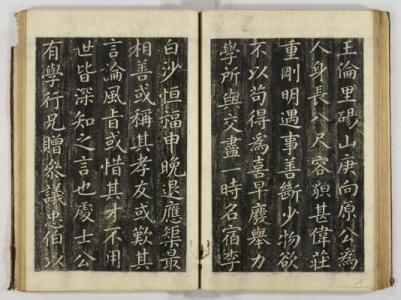 王倫里碭山庚向原公為
人身長八尺容貌甚偉莊
重剛明遇事善斷少物欲
不以苟得為喜早廢舉力
學所與交盡一時名宿李
白沙恒福申晚退應榘最
相善或稱其孝友或歎其
言論風旨或惜其才不用
世皆深知之言也處士公
有學行兄贈叅議忠伯以